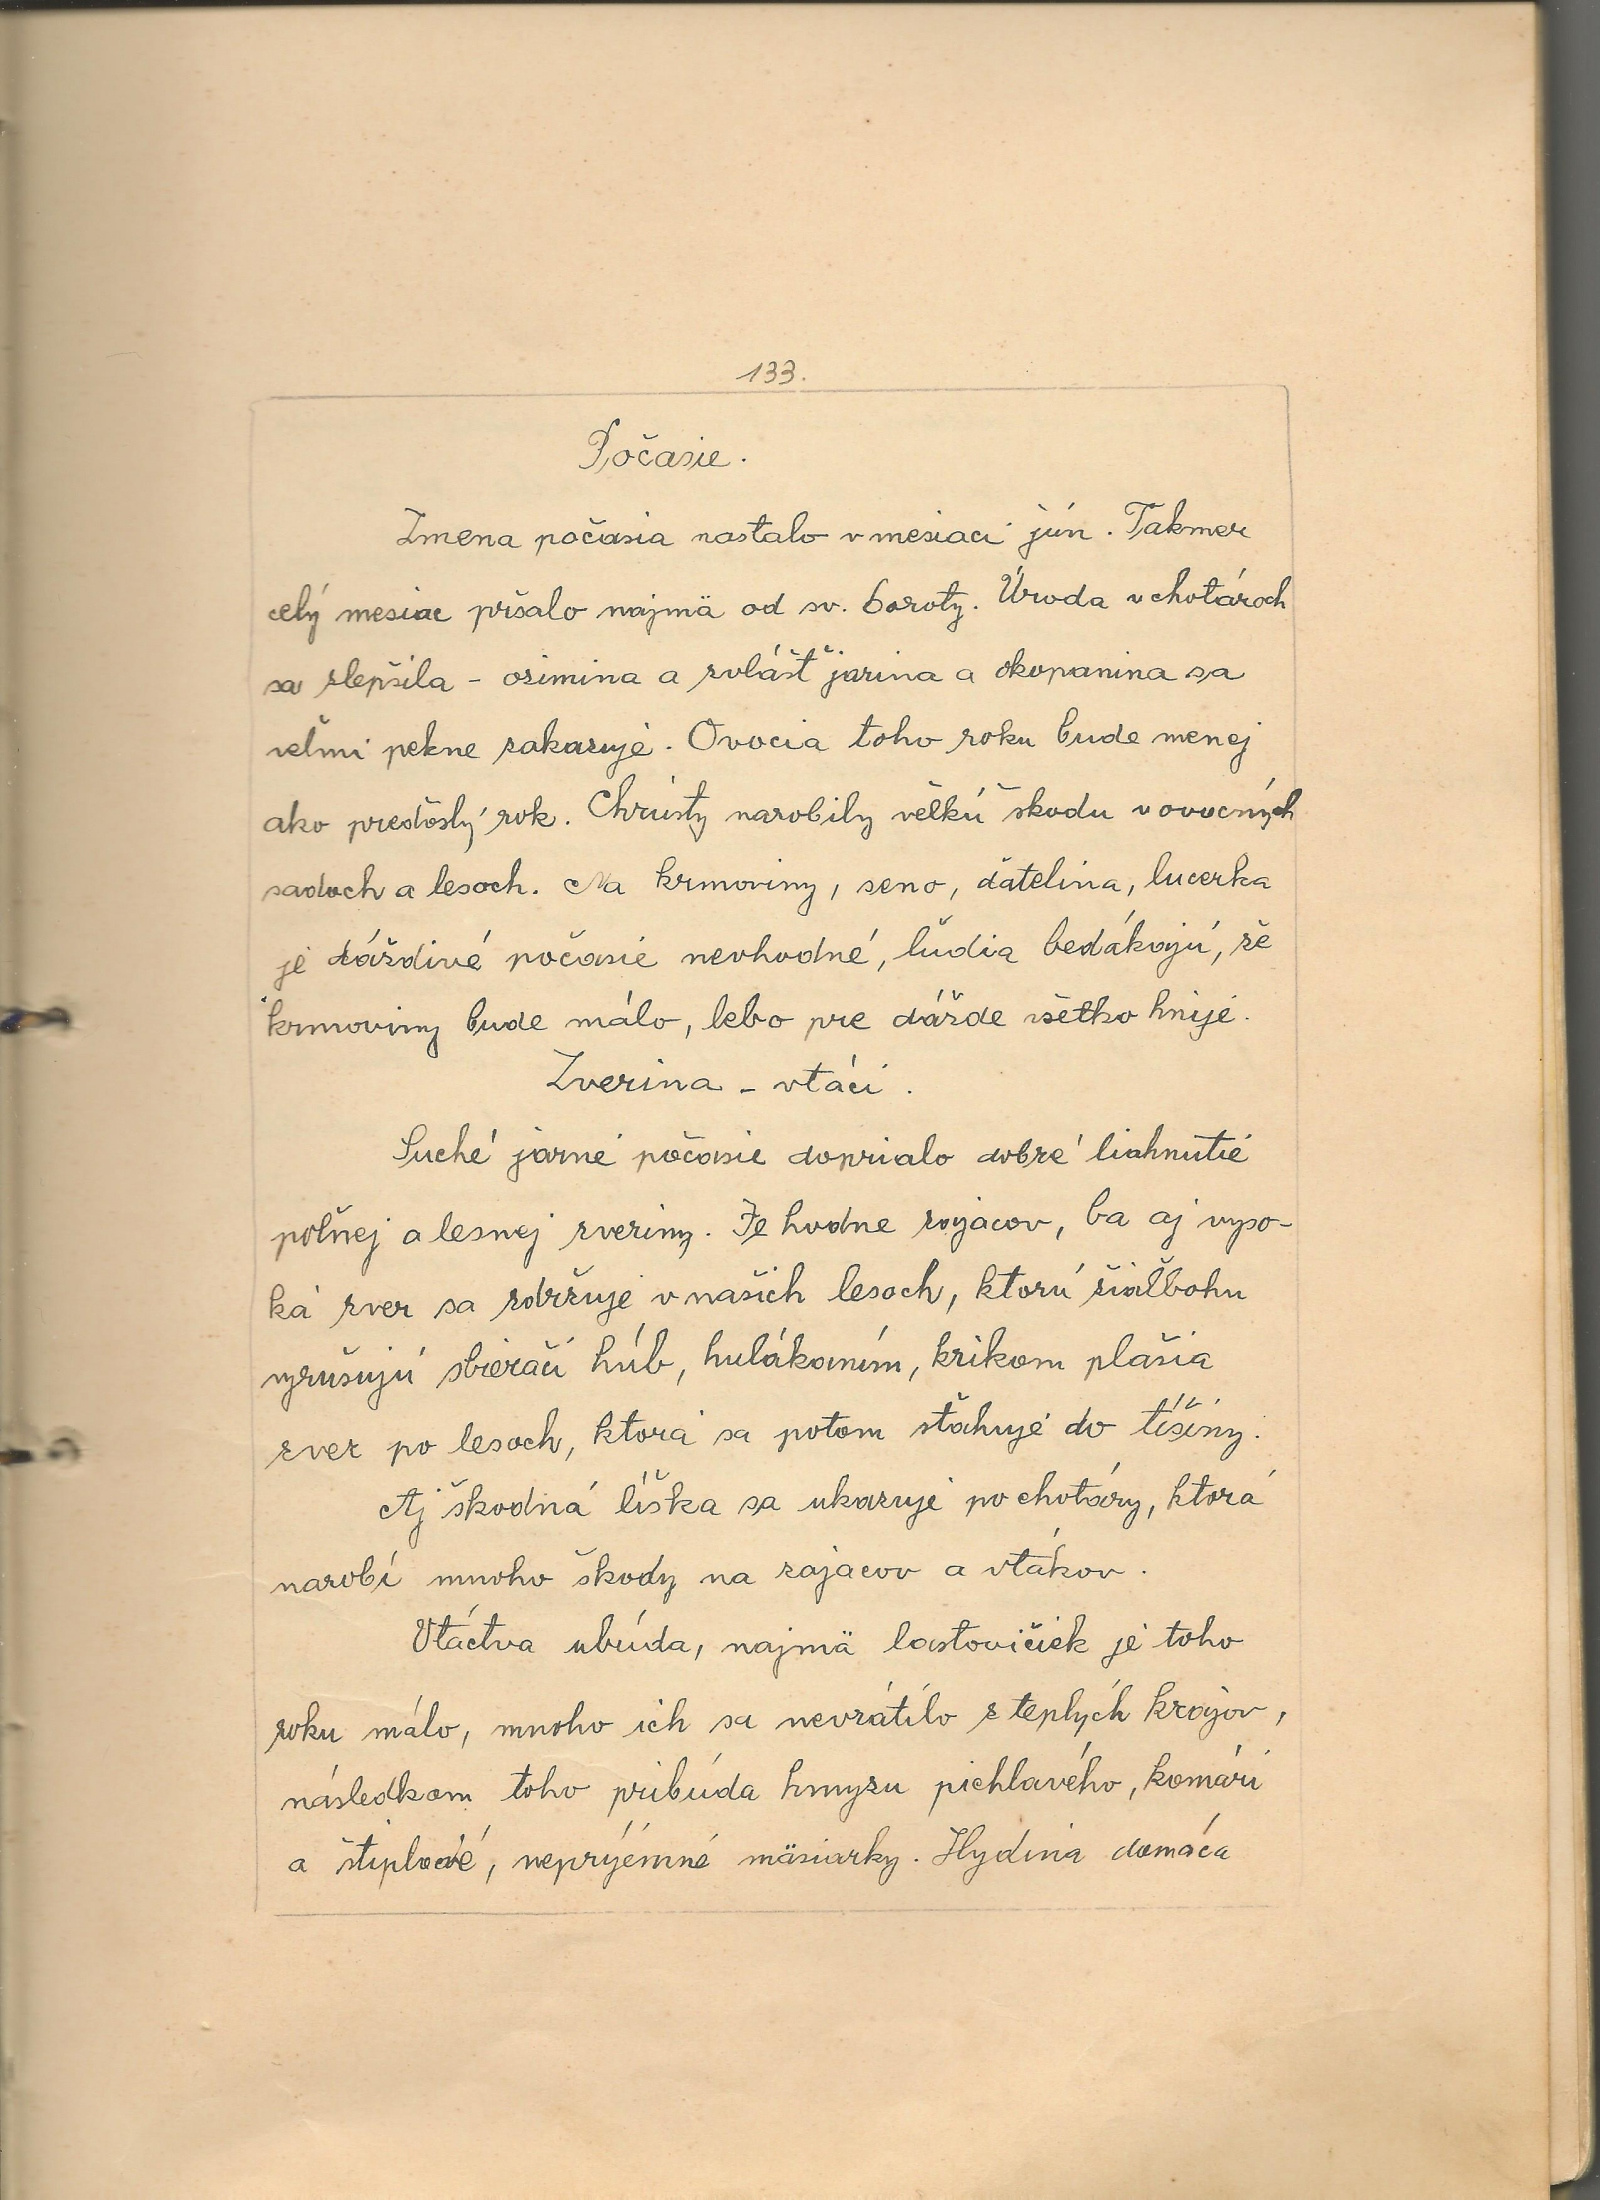 133.
Počasie.
Zmena počasia nastalo v mesiaci jún. Takmer
celý mesiac pršalo najmä od sv. Doroty. Úroda v chotároch
sa zlepšila - ozimina a zvlášť jarina a okopanina sa
veľmi pekne zakazuje. Ovocia toho roku bude menej
ako predošlý rok. Chrústy narobily veľkú škodu v ovocných
sadoch a lesoch. Na krmoviny, seno, ďatelina, lucerka
je dáždivé počasie nevhodné, ľudia bedákajú, že
krmoviny bude málo, lebo pre dážde všetko hnije.
Zverina - vtáci.
Suché jarné počasie doprialo dobré liahnutie
poľnej a lesnej zveriny. Je hodne zajacov, ba aj vyso-
ká zver sa zdržuje v našich lesoch, ktorú žiaľbohu
vyrušujú sbierači húb, hulákaním, krikom plašia
zver po lesoch, ktorá sa potom sťahuje do tíšiny.
Aj škodná líška sa ukazuje po chotáry, ktorá
narobí mnoho škody na zajacov a vtákov.
Vtáctva ubúda, najmä lastovičiek je toho
roku málo, mnoho ich sa nevrátilo z teplých krajov,
následkom toho pribúda hmyzu pichlavého, komári
a štiplavé, neprýémné mäsiarky. Hydina domáca